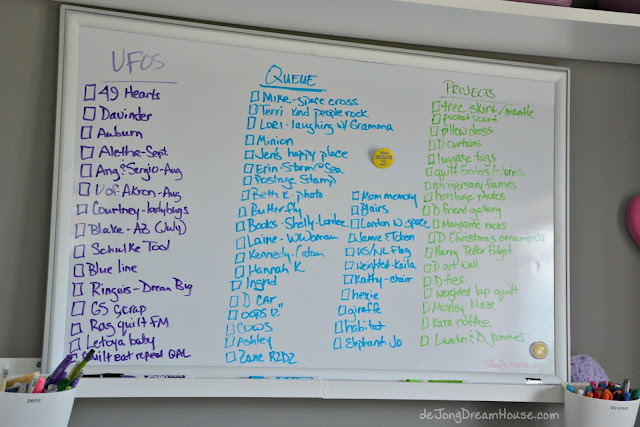 UFOs
49 Hearts
Davinder
Auburn
Aletha-Sept
Ang & Sergio-Aug
U of Akron-Aug
Courtney-ladybugs
Blake-AZ (July)
Schulke Tool
Blue line
Ringeis-Dream Big
GS Scrap
Rag quilt FM
Letoya baby
Quilt eat repeat QAL
Queue
Mike-space cross
Terri-kind people rock
Lori-laughing w/ Gramma
Minion
Jen's happy place
Erin-Storm @ Sea
Postage Stamp
Beth K. photo
Butterfly
Books-Shelly
Laine-WWoman
Kennedy
Hannah K
Ingrid
D CAR
OOPS 12"
COWS
Ashley
Zane R2D2
Mom memory
Blairs
Landon W-space
Jamie E. Token
US/NL Flag
Weighted-Kaila
Kathy-chair
hexie
giraffe
habitat
Elephant Jo
Projects
tree skirt/mantle
pocket scarf
pillow dress
D curtains
luggage tags
quilt
anniversary frames
heritage photos
D friend gallery
Magazine racks
D Christmas ornaments
Harry Potter
D art wall
D-ties
weighted lap quilt
Moxley Maze
Kara coffee
Landon & D jammies
pens
deJongDreamHouse.com